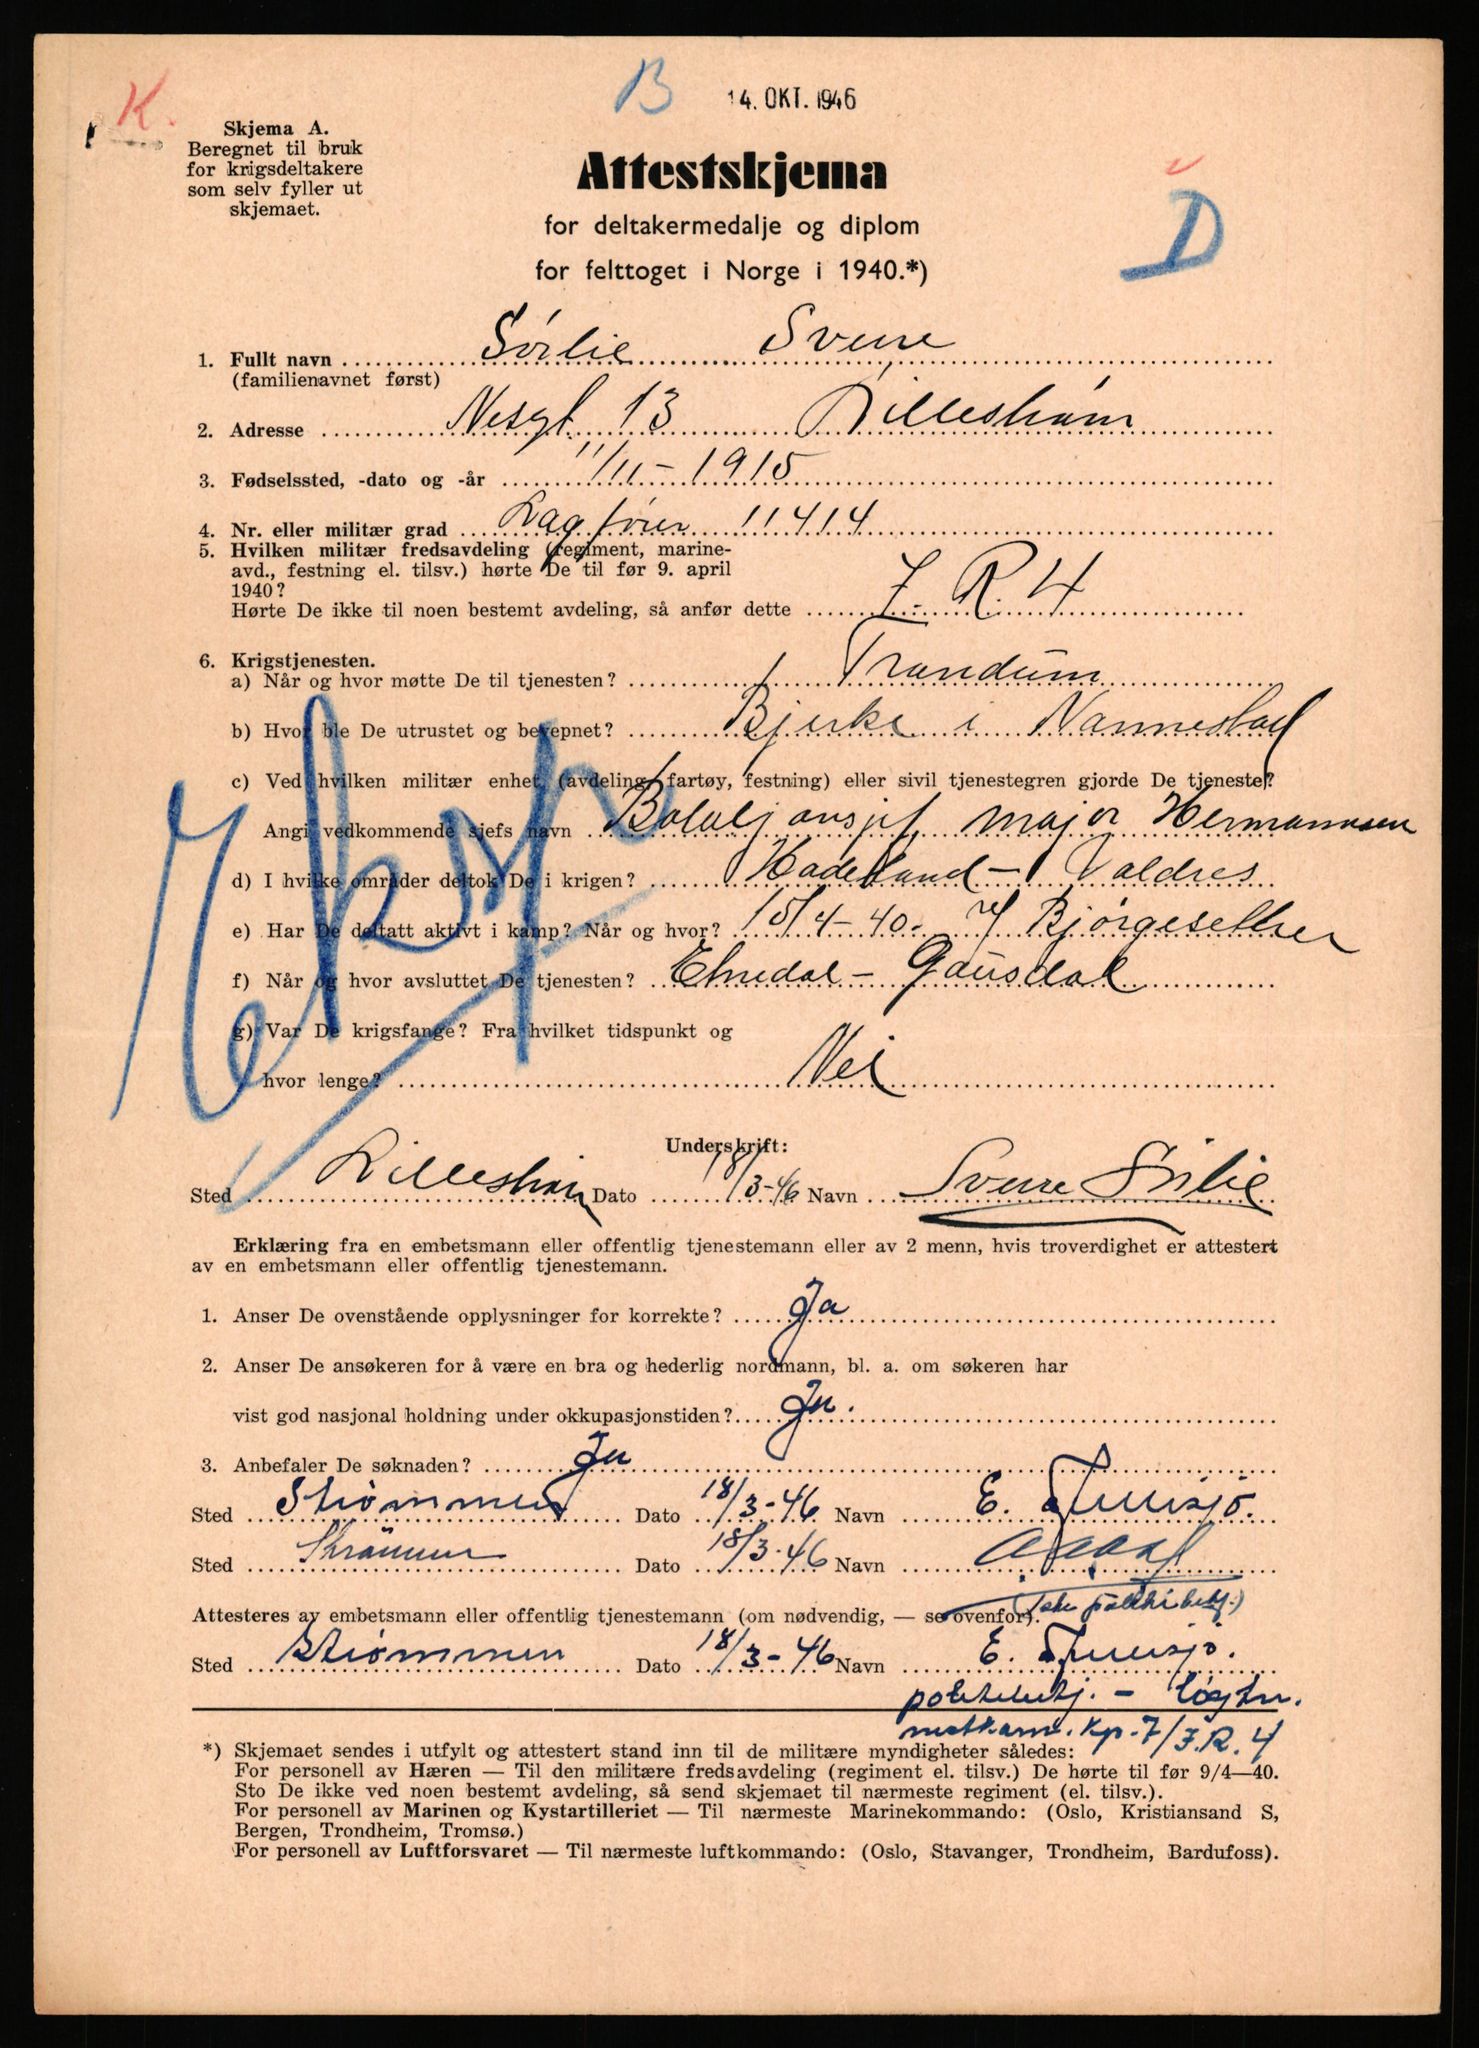 K.
B
14. OKT. 1946
Skjema A.
Beregnet til bruk
for krigsdeltakere
som selv fyller ut
skjemaet.
Attestskjema
for deltakermedalje og diplom
for felttoget i Norge i 1940.*)
D
1. Fullt navn Sörlie Sverre
(familienavnet først)
2. Adresse Nesgt. 13 Lilleström
3. Fødselssted, -dato og -år 11/11-1915
4. Nr. eller militær grad Lagförer 11414
5. Hvilken militær fredsavdeling (regiment, marine-
avd., festning el. tilsv.) hørte De til før 9. april
1940?
Hørte De ikke til noen bestemt avdeling, så anfør dette I.R. 4
6. Krigstjenesten.
a) Når og hvor møtte De til tjenesten? Trandum
b) Hvor ble De utrustet og bevepnet? Bjerke i Nannestad
c) Ved hvilken militær enhet (avdeling, fartøy, festning) eller sivil tjenestegren gjorde De tjeneste?
Angi vedkommende sjefs navn major Hermannsen
d) I hvilke områder deltok De i krigen? Hadeland - Valdres
e) Har De deltatt aktivt i kamp? Når og hvor? 15/4-40. v/ Bjørgeseter
f) Når og hvor avsluttet De tjenesten? Gausdal
g) Var De krigsfange? Fra hvilket tidspunkt og
hvor lenge? Nei
Underskrift:
Sted Lilleström Dato 18/3-46 Navn Sverre Sörlie
Erklæring fra en embetsmann eller offentlig tjenestemann eller av 2 menn, hvis troverdighet er attestert
av en embetsmann eller offentlig tjenestemann.
1. Anser De ovenstående opplysninger for korrekte? Ja
2. Anser De ansøkeren for å være en bra og hederlig nordmann, bl. a. om søkeren har
vist god nasjonal holdning under okkupasjonstiden? Ja.
3. Anbefaler De søknaden? Ja
Sted Strømmen Dato 18/3-46 Navn E.
Sted Strømmen Dato 18/3-46 Navn
Attesteres av embetsmann eller offentlig tjenestemann (om nødvendig, — se ovenfor).
Sted Strømmen Dato 18/3-46 Navn E.
politibetj. - løytn.
Kp. 7/I.R. 4
*) Skjemaet sendes i utfylt og attestert stand inn til de militære myndigheter således:
For personell av Hæren — Til den militære fredsavdeling (regiment el. tilsv.) De hørte til før 9/4—40.
Sto De ikke ved noen bestemt avdeling, så send skjemaet til nærmeste regiment (el. tilsv.).
For personell av Marinen og Kystartilleriet — Til nærmeste Marinekommando: (Oslo, Kristiansand S,
Bergen, Trondheim, Tromsø.)
For personell av Luftforsvaret — Til nærmeste luftkommando: (Oslo, Stavanger, Trondheim, Bardufoss).